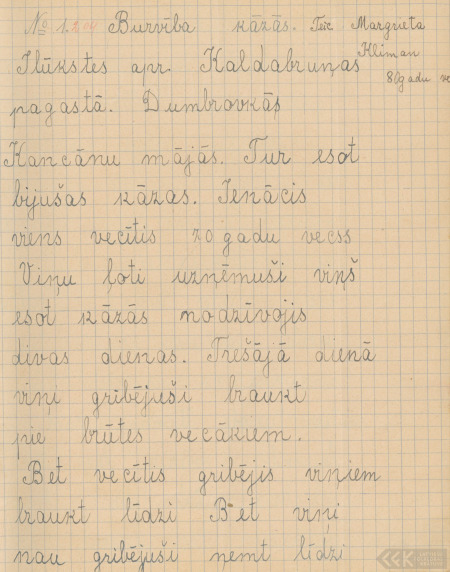 № 1.204 Burvība kāzās. Teic. Margrieta
Kliman
Ilūkstes apr. Kaldabruņas
80gadu ve
pagastā. Dumbrovkās
Kancānu mājās. Tur esot
bijušas kāzas. Ienācis
viens vecītis 70 gadu vecss
Viņu ļoti uzņēmuši viņš
esot kāzās nodzīvojis
divas dienas. Trešājā dienā
viņi gribējuši braukt
pie brūtes vecākiem.
Bet vecītis gribējis viņiem
braukt līdzi Bet viņi
nau gribējuši ņemt līdzi